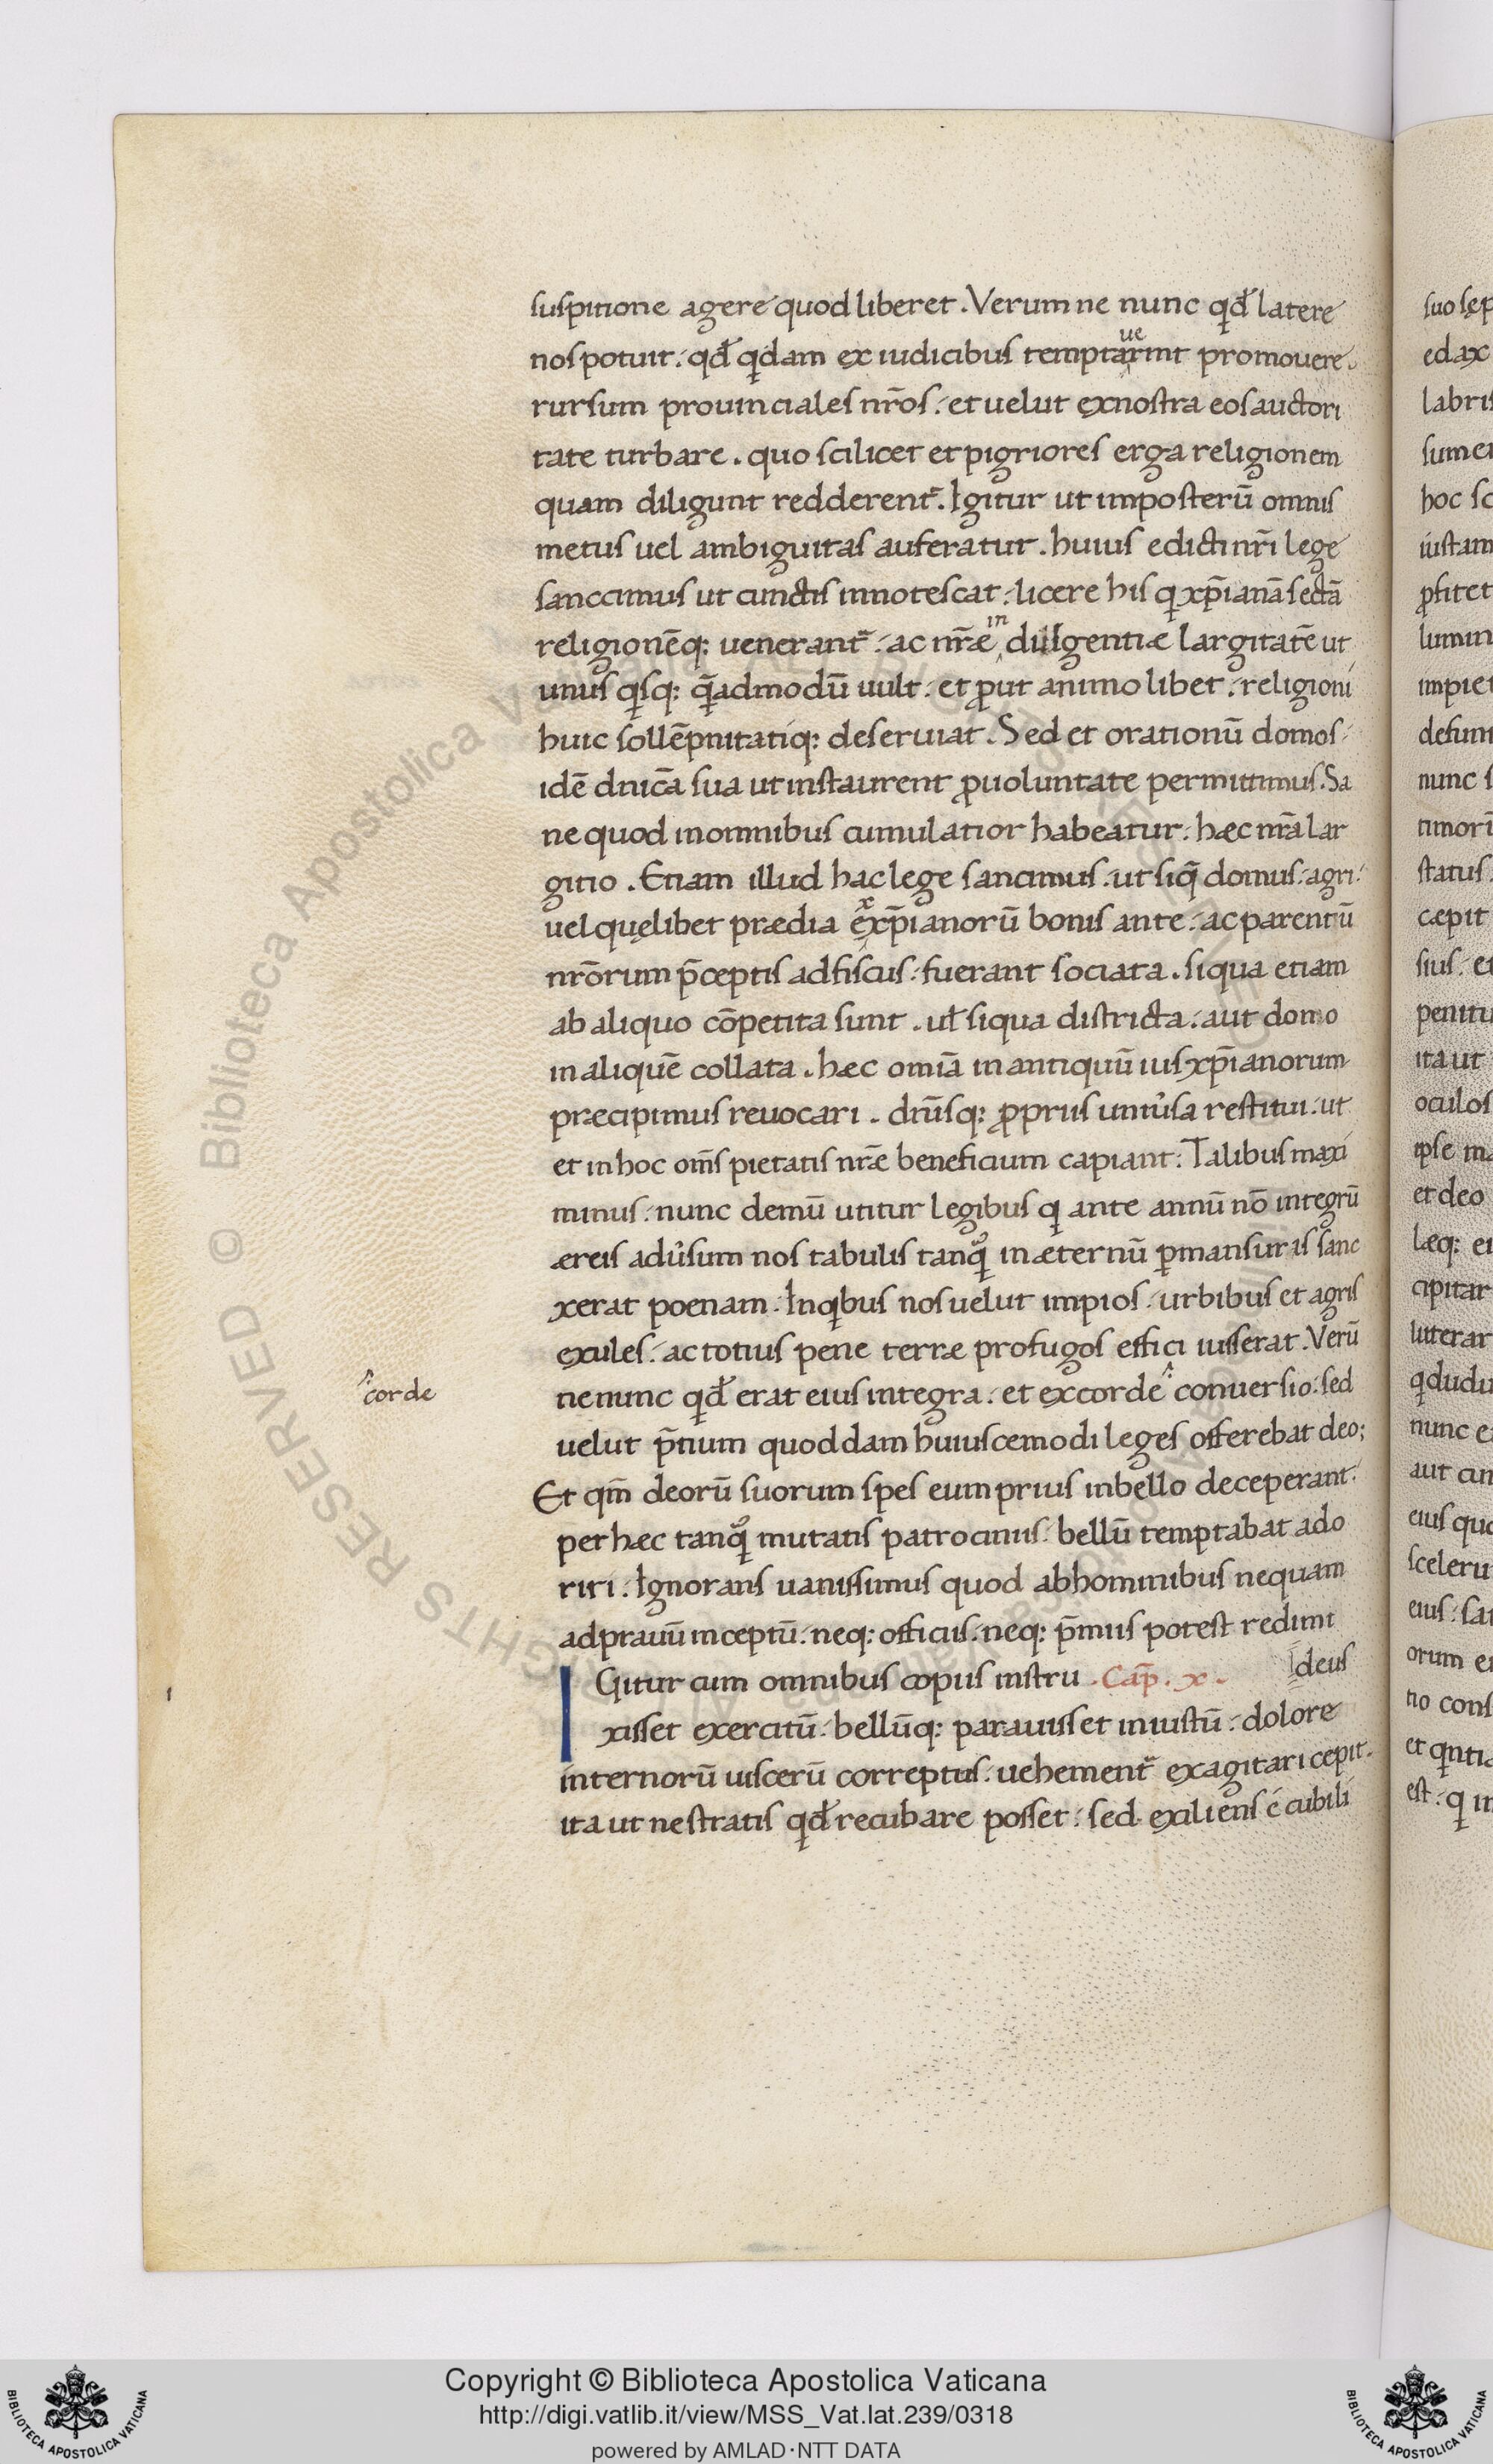 suspitione agere quod liberet. Verum ne nunc qđ latere
nos potuit: qđ qdam ex iudicibus temptaueri̅nt promouere.
rursum prouinciales nr̅os: et uelut ex nostra eos auctori
tate turbare. quo scilicet et pigriores erga religionem
quam diligunt redderent̅. Igitur ut imposteru̅ omnis
metus uel ambiguitas auferatur. huius edicti nr̅i lege
sanccimus ut cunctis innotescat: licere his q xp̅iana̅ secta̅
religione̅q: uenerant̅: ac nr̅æ indulgentiæ largitate̅ ut
unus qsq: q̅admodu̅ uult: et ꝓut animo libet: religioni
huic solle̅pnitatiq: deseruiat. Sed et orationu̅ domos
ide̅ dnica̅ sua ut instaurent ꝓ uoluntate permittimus. Sa
ne quod in omnibus cumulatior habeatur: hæc nr̅a lar
gitio. Etiam illud hac lege sancimus: ut siq̅ domus: agri:
uel quęlibet prædia ex xp̅ianoru̅ bonis ante: ac parentu̅
nr̅orum p̅ceptis ad fiscus: fuerant sociata. siqua etiam
ab aliquo co̅petita sunt. uł siqua districta: aut domo
in alique̅ collata. hæc omi̅a in antiquu̅ ius xp̅ianorum
præcipimus reuocari. dn̅isq: ꝓpriis uniu̕sa restitui: ut
et in hoc om̅s pietatis nr̅e beneficium capiant: Talibus maxi
minus: nunc demu̅ utitur legibus q ante annu̅ no̅ integru̅
æreis adu̕sum nos tabulis tanqͦ in æternu̅ ꝑmansuris sanc
xerat poenam. Inqbus nos uelut impios: urbibus et agris
exules: ac totius pene terræ profugos effici iusserat. Veru̅
ne nunc qđ erat eius integra: et ex corde conuersio: sed
corde
uelut p̅tium quoddam huiuscemodi leges offerebat deo;
Et qm̅ deoru̅ suorum spes eum prius in bello deceperant:
per hæc tanqͦ mutatis patrociniis: bellu̅ temptabat ado
riri: Ignorans uanissimus quod ab hominibus nequam
ad prauu̅ inceptu̅: neq: officiis: neq: p̅miis potest redimi
IGitur cum omnibus copiis instru . Cap̅. x. deus
xisset exercitu̅: bellu̅q: parauisset iniustu̅: dolore
internoru̅ uisceru̅ correptus: uehement̅ exagitari cepit:
ita ut ne stratis qđ recubare posset: sed exiliens é cubili
Copyright © Biblioteca Apostolica Vaticana
http://digi.vatlib.it/view/MSS_Vat.lat.239/0318
powered by AMLAD·NTT DATA